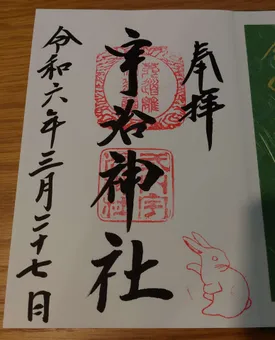 奉拝
宇治神社
令和六年三月二十七日